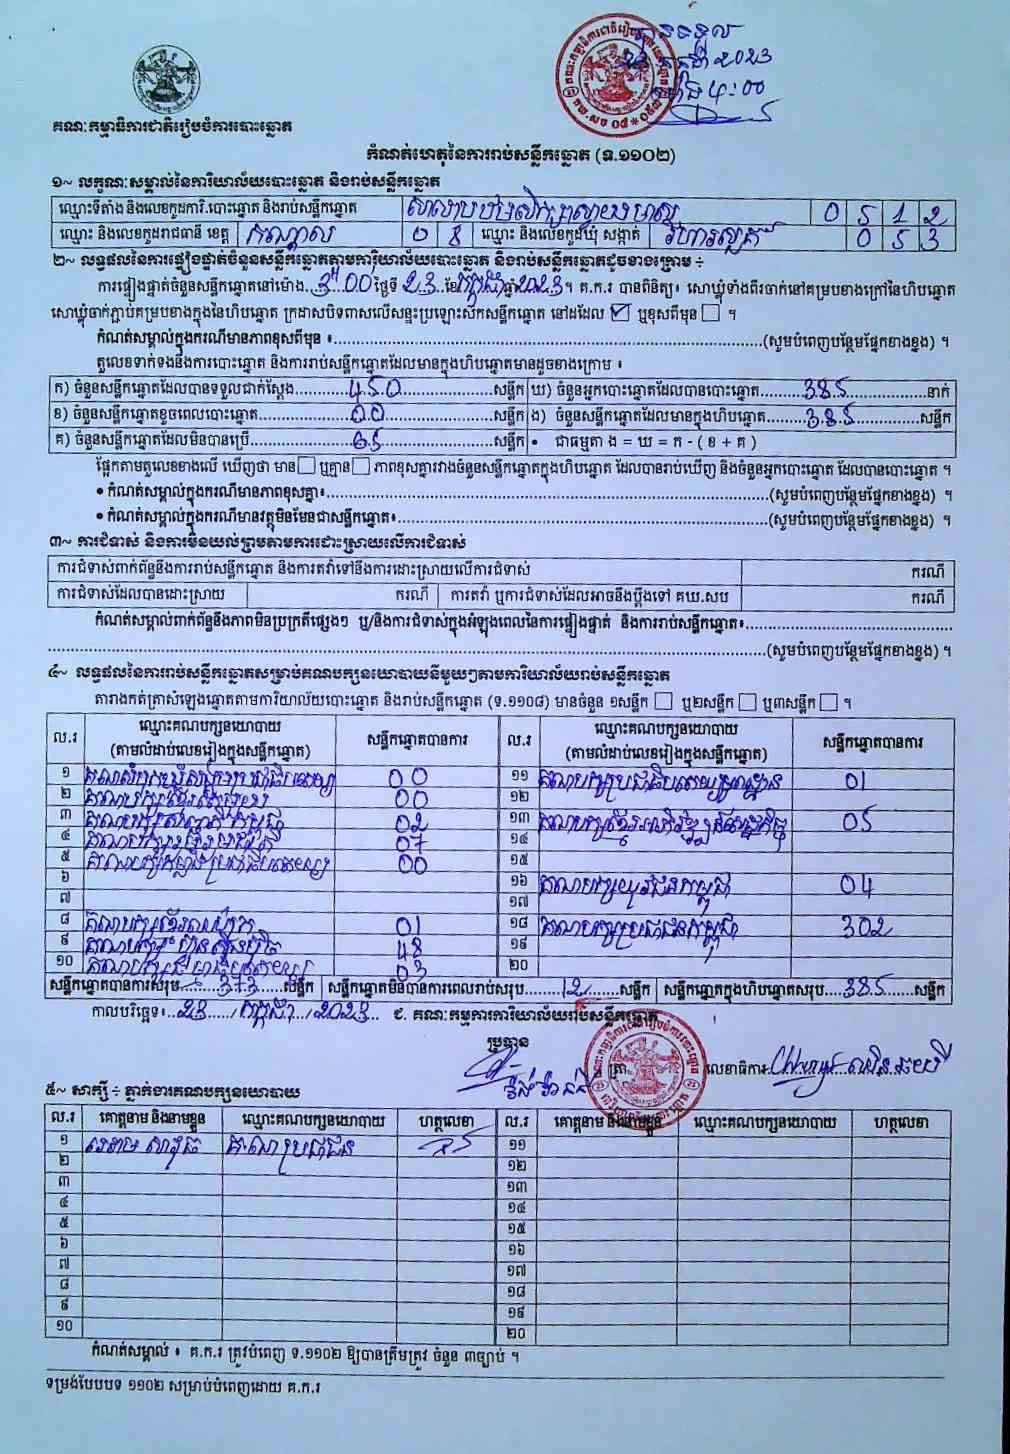 បានទទួល
២៣ កក្កដា ២០២៣
ម៉ោង ៤:០០
គណៈកម្មាធិការជាតិរៀបចំការបោះឆ្នោត
កំណត់ហេតុនៃការរាប់សន្លឹកឆ្នោត (ទ.១១០២)
១~ លក្ខណៈសម្គាល់នៃការិយាល័យបោះឆ្នោត និងរាប់សន្លឹកឆ្នោត
ឈ្មោះទីតាំង និងលេខកូដការិ.បោះឆ្នោត និងរាប់សន្លឹកឆ្នោត 0 5 1 2
ឈ្មោះ និងលេខកូដរាជធានី ខេត្ត កណ្តាល 0 8 ឈ្មោះ និងលេខកូដឃុំ សង្កាត់ វិហារសួគ៌ 0 5 3
២~ លទ្ធផលនៃការផ្ទៀងផ្ទាត់ចំនួនសន្លឹកឆ្នោតតាមការិយាល័យបោះឆ្នោត និងរាប់សន្លឹកឆ្នោតដូចខាងក្រោម ÷
ការផ្ទៀងផ្ទាត់ចំនួនសន្លឹកឆ្នោតនៅម៉ោង..3:00ថ្ងៃទី 23 ខែកក្កដាឆ្នាំ2023។ គ.ក.រ បានពិនិត្យ៖ សោឃ្លុំទាំងពីរចាក់នៅគម្របខាងក្រៅនៃហិបឆ្នោត
សោឃ្លុំចាក់ភ្ជាប់គម្របខាងក្នុងនៃហិបឆ្នោត ក្រដាសបិទពាសលើសន្ទះប្រឡោះស៊កសន្លឹកឆ្នោត នៅដដែល ☑ ឬខុសពីមុន ☐ ។
កំណត់សម្គាល់ក្នុងករណីមានភាពខុសពីមុន ៖.....(សូមបំពេញបន្ថែមផ្នែកខាងខ្នង) ។
តួលេខទាក់ទងនឹងការបោះឆ្នោត និងការរាប់សន្លឹកឆ្នោតដែលមានក្នុងហិបឆ្នោតមានដូចខាងក្រោម ៖
ក) ចំនួនសន្លឹកឆ្នោតដែលបានទទួលជាក់ស្តែង.....450.....សន្លឹក ឃ) ចំនួនអ្នកបោះឆ្នោតដែលបានបោះឆ្នោត.....385.....នាក់
ខ) ចំនួនសន្លឹកឆ្នោតខូចពេលបោះឆ្នោត.....00.....សន្លឹក ង) ចំនួនសន្លឹកឆ្នោតដែលមានក្នុងហិបឆ្នោត.....385.....សន្លឹក
គ) ចំនួនសន្លឹកឆ្នោតដែលមិនបានប្រើ.....65.....សន្លឹក • ជាធម្មតា ង = ឃ = ក - ( ខ + គ )
ផ្អែកតាមតួលេខខាងលើ ឃើញថា មាន☐ ឬគ្មាន☐ ភាពខុសគ្នារវាងចំនួនសន្លឹកឆ្នោតក្នុងហិបឆ្នោត ដែលបានរាប់ឃើញ និងចំនួនអ្នកបោះឆ្នោត ដែលបានបោះឆ្នោត ។
• កំណត់សម្គាល់ក្នុងករណីមានភាពខុសគ្នា៖.....(សូមបំពេញបន្ថែមផ្នែកខាងខ្នង) ។
• កំណត់សម្គាល់ក្នុងករណីមានវត្ថុមិនមែនជាសន្លឹកឆ្នោត៖.....(សូមបំពេញបន្ថែមផ្នែកខាងខ្នង) ។
៣~ ការជំទាស់ និងការមិនយល់ព្រមតាមការដោះស្រាយលើការជំទាស់
ការជំទាស់ពាក់ព័ន្ធនឹងការរាប់សន្លឹកឆ្នោត និងការតវ៉ាទៅនឹងការដោះស្រាយលើការជំទាស់ ករណី
ការជំទាស់ដែលបានដោះស្រាយ ករណី ការតវ៉ា ឬការជំទាស់ដែលអាចនឹងប្តឹងទៅ គឃ.សប ករណី
កំណត់សម្គាល់ពាក់ព័ន្ធនឹងភាពមិនប្រក្រតីផ្សេងៗ ឬ/និងការជំទាស់ក្នុងអំឡុងពេលនៃការផ្ទៀងផ្ទាត់ និងការរាប់សន្លឹកឆ្នោត៖.....
.....(សូមបំពេញបន្ថែមផ្នែកខាងខ្នង) ។
៤~ លទ្ធផលនៃការរាប់សន្លឹកឆ្នោតសម្រាប់គណបក្សនយោបាយនីមួយៗតាមការិយាល័យរាប់សន្លឹកឆ្នោត
តារាងកត់ត្រាសំឡេងឆ្នោតតាមការិយាល័យបោះឆ្នោត និងរាប់សន្លឹកឆ្នោត (ទ.១១០៨) មានចំនួន ១សន្លឹក ☐ ឬ២សន្លឹក ☐ ឬ៣សន្លឹក ☐ ។
ល.រ ឈ្មោះគណបក្សនយោបាយ (តាមលំដាប់លេខរៀងក្នុងសន្លឹកឆ្នោត) សន្លឹកឆ្នោតបានការ ល.រ ឈ្មោះគណបក្សនយោបាយ (តាមលំដាប់លេខរៀងក្នុងសន្លឹកឆ្នោត) សន្លឹកឆ្នោតបានការ
១ 00 ១១ 01
២ 00 ១២
៣ 02 ១៣ 05
៤ 07 ១៤
៥ 00 ១៥
៦ ១៦ គណបក្សយុវជនកម្ពុជា 04
៧ ១៧
៨ 01 ១៨ គណបក្សប្រជាជនកម្ពុជា 302
៩ គណបក្សហ្វ៊ុនស៊ិនប៉ិច 48 ១៩
១០ 03 ២០
សន្លឹកឆ្នោតបានការសរុប.....373.....សន្លឹក សន្លឹកឆ្នោតមិនបានការពេលរាប់សរុប.....12.....សន្លឹក សន្លឹកឆ្នោតក្នុងហិបឆ្នោតសរុប....385.....សន្លឹក
កាលបរិច្ឆេទ៖..23...../ កក្កដា.../2023.. ជ. គណៈកម្មការការិយាល័យរាប់សន្លឹកឆ្នោត
ប្រធាន
ត្រា
លេខាធិការ
៥~ សាក្សី ÷ ភ្នាក់ងារគណបក្សនយោបាយ
ល.រ គោត្តនាម និងនាមខ្លួន ឈ្មោះគណបក្សនយោបាយ ហត្ថលេខា ល.រ គោត្តនាម និងនាមខ្លួន ឈ្មោះគណបក្សនយោបាយ ហត្ថលេខា
១ គ.ប ប្រជាជន ១១
២ ១២
៣ ១៣
៤ ១៤
៥ ១៥
៦ ១៦
៧ ១៧
៨ ១៨
៩ ១៩
១០ ២០
កំណត់សម្គាល់ ៖ គ.ក.រ ត្រូវបំពេញ ទ.១១០២ ឱ្យបានត្រឹមត្រូវ ចំនួន ៣ច្បាប់ ។
ទម្រង់បែបបទ ១១០២ សម្រាប់បំពេញដោយ គ.ក.រ